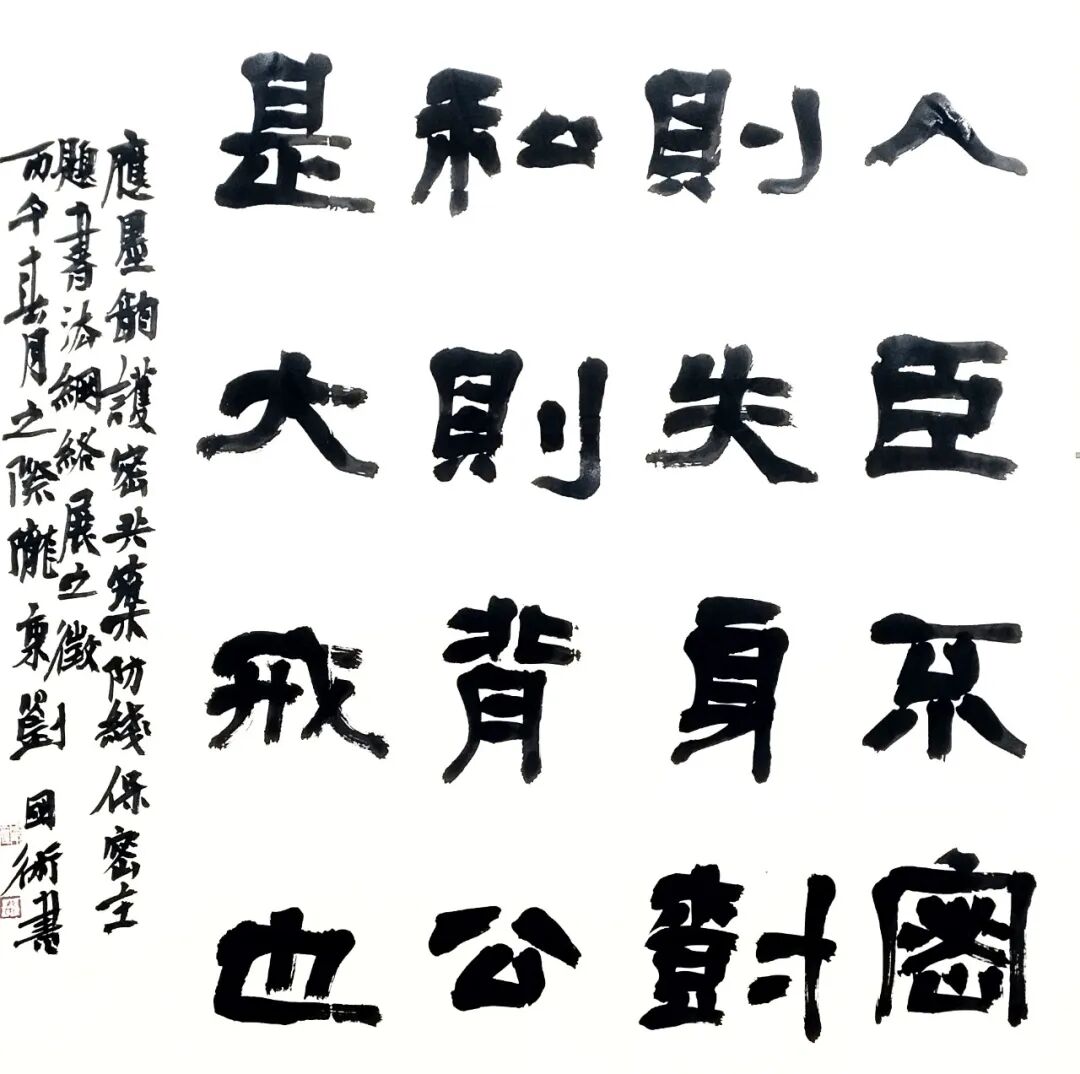 人臣不密
則失身對
私則背公
是大戒也
應墨韵護密共築防綫保密主
題書法網絡展之徵
丙午春月之際隴東劉國術書